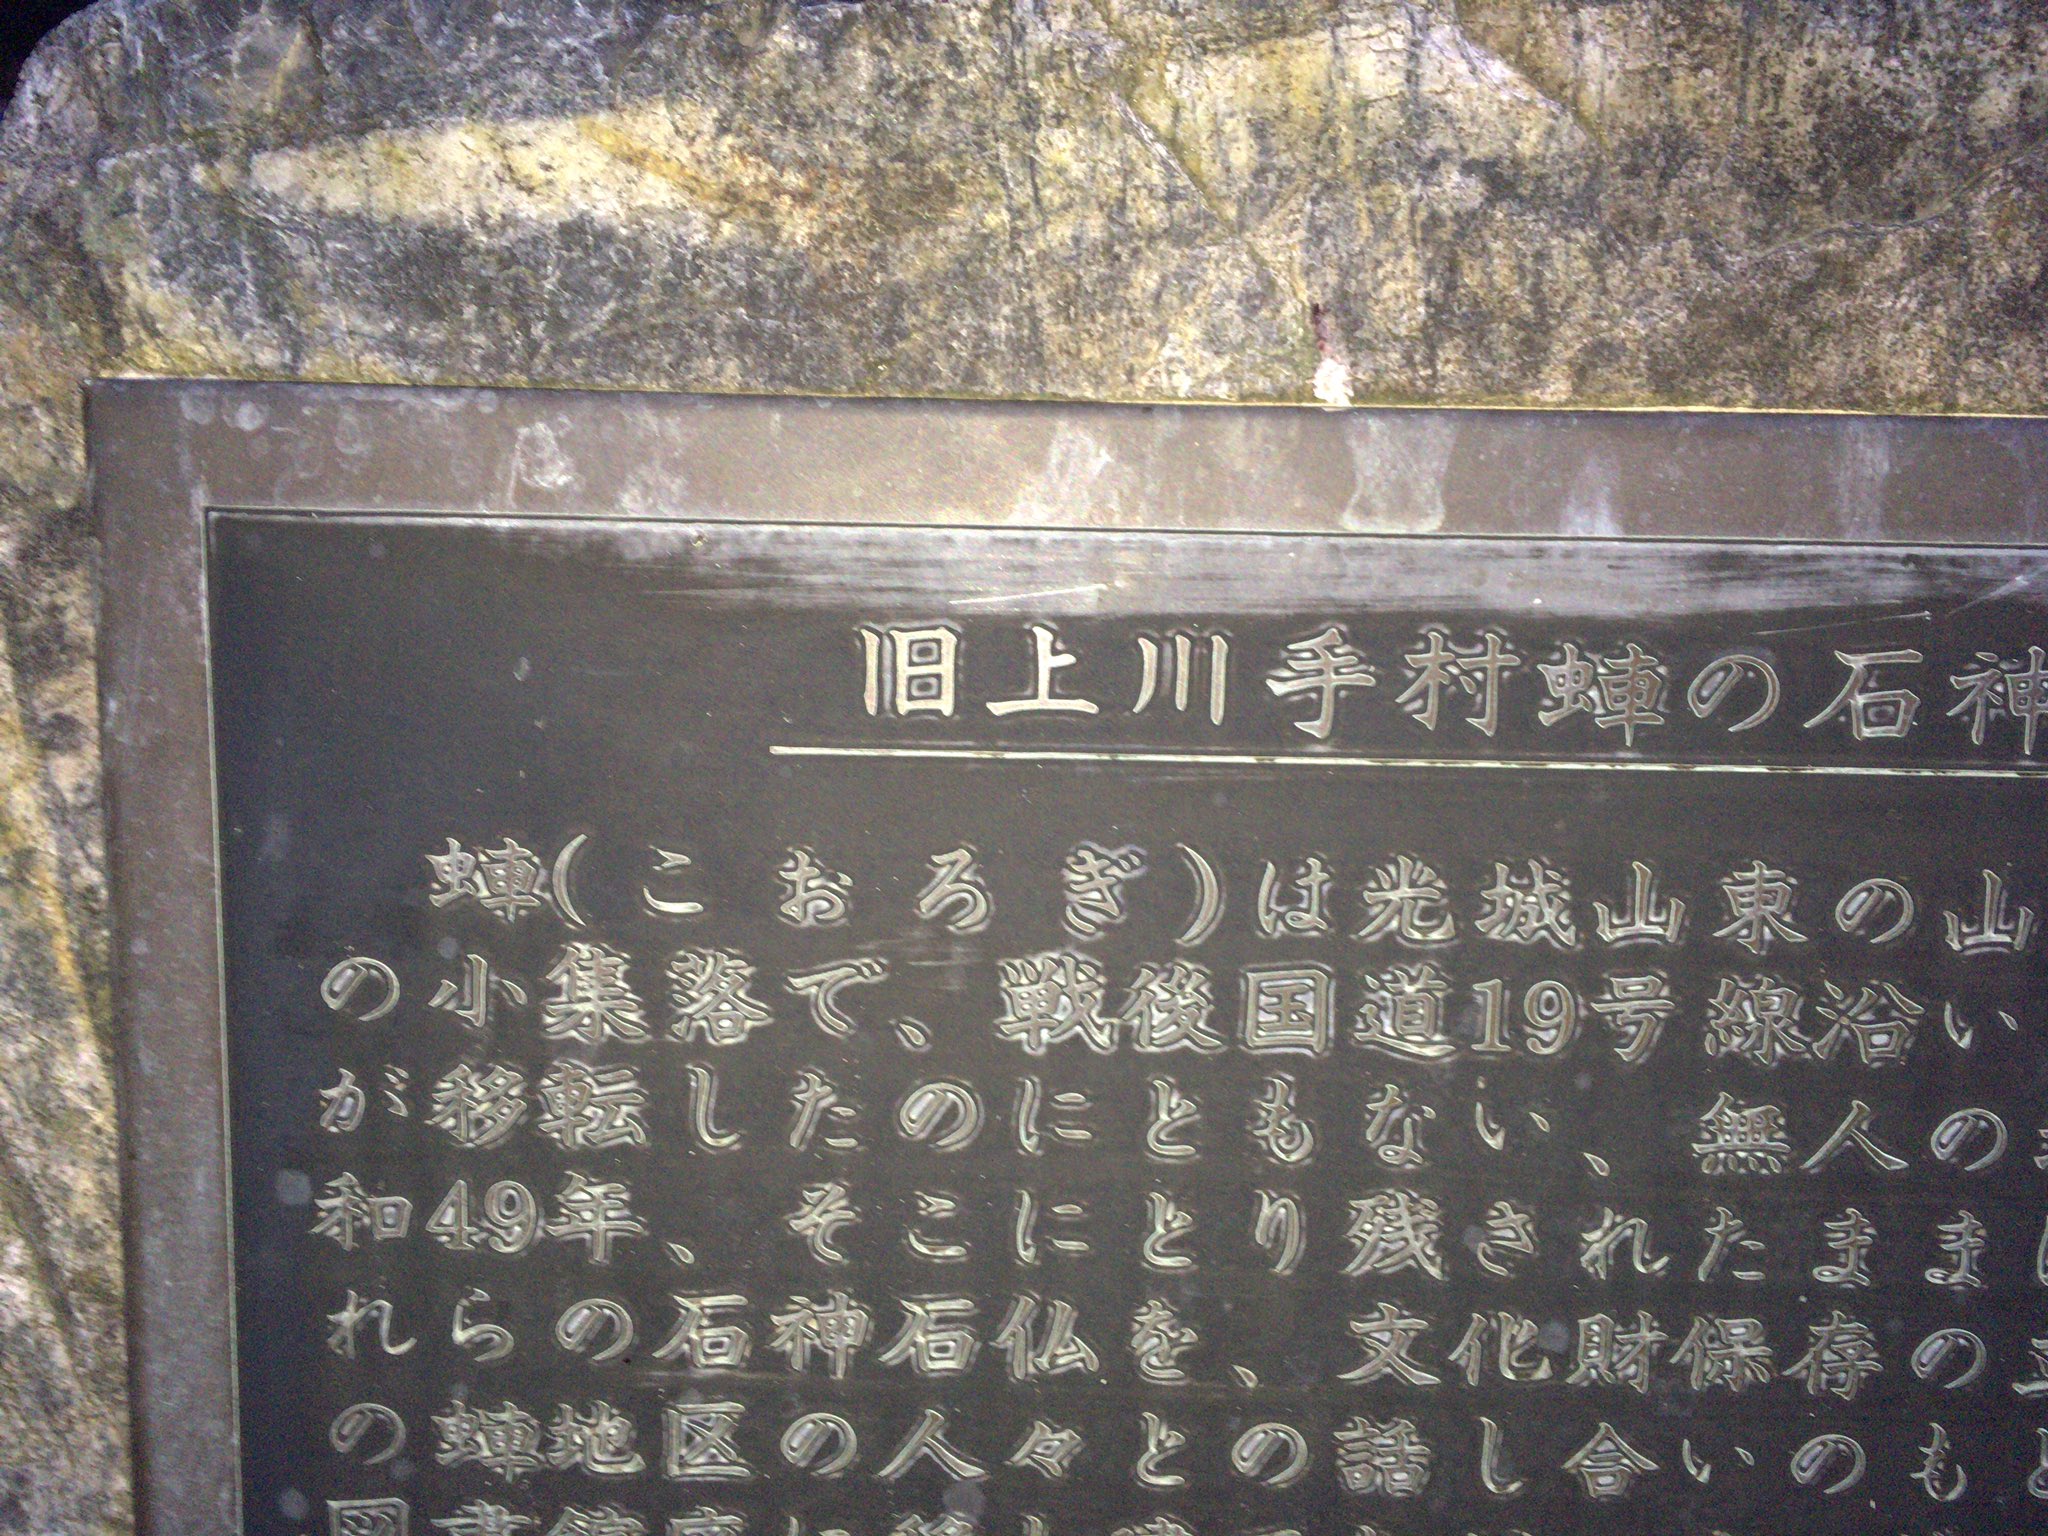 旧上川手村蛼の石神
蛼(こおろぎ)は光城山東の山
の小集落で、戦後国道19号線沿い
が移転したのにともない、無人の
和49年、そこにとり残されたまま
れらの石神石仏を、文化財保存の
の蛼地区の人々との話し合いのも
図書館